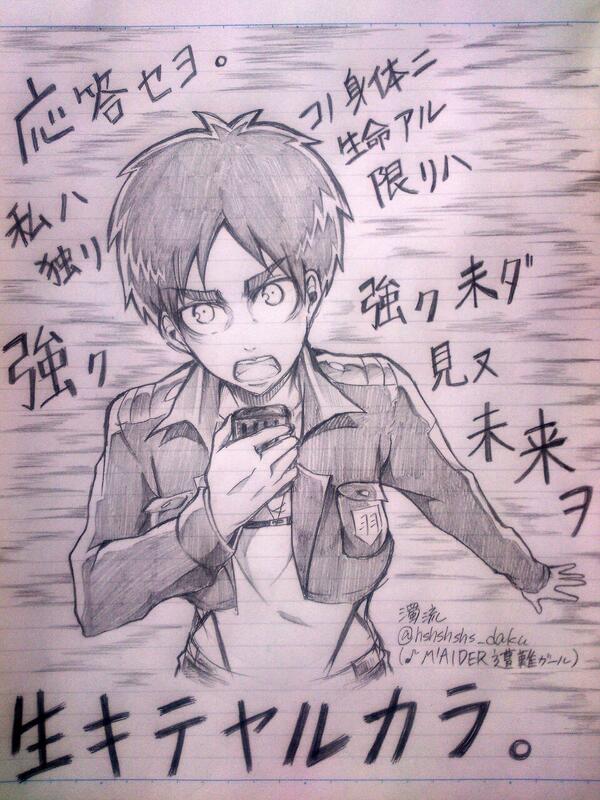 応答セヨ。
コノ身体ニ
生命アル
限リハ
私ハ
独リ
強ク
強ク未ダ
見ヌ
未来ヲ
羽
濁流
@hshshshs_daku
(♪ M'AIDER遭難ガール)
生キテヤルカラ。